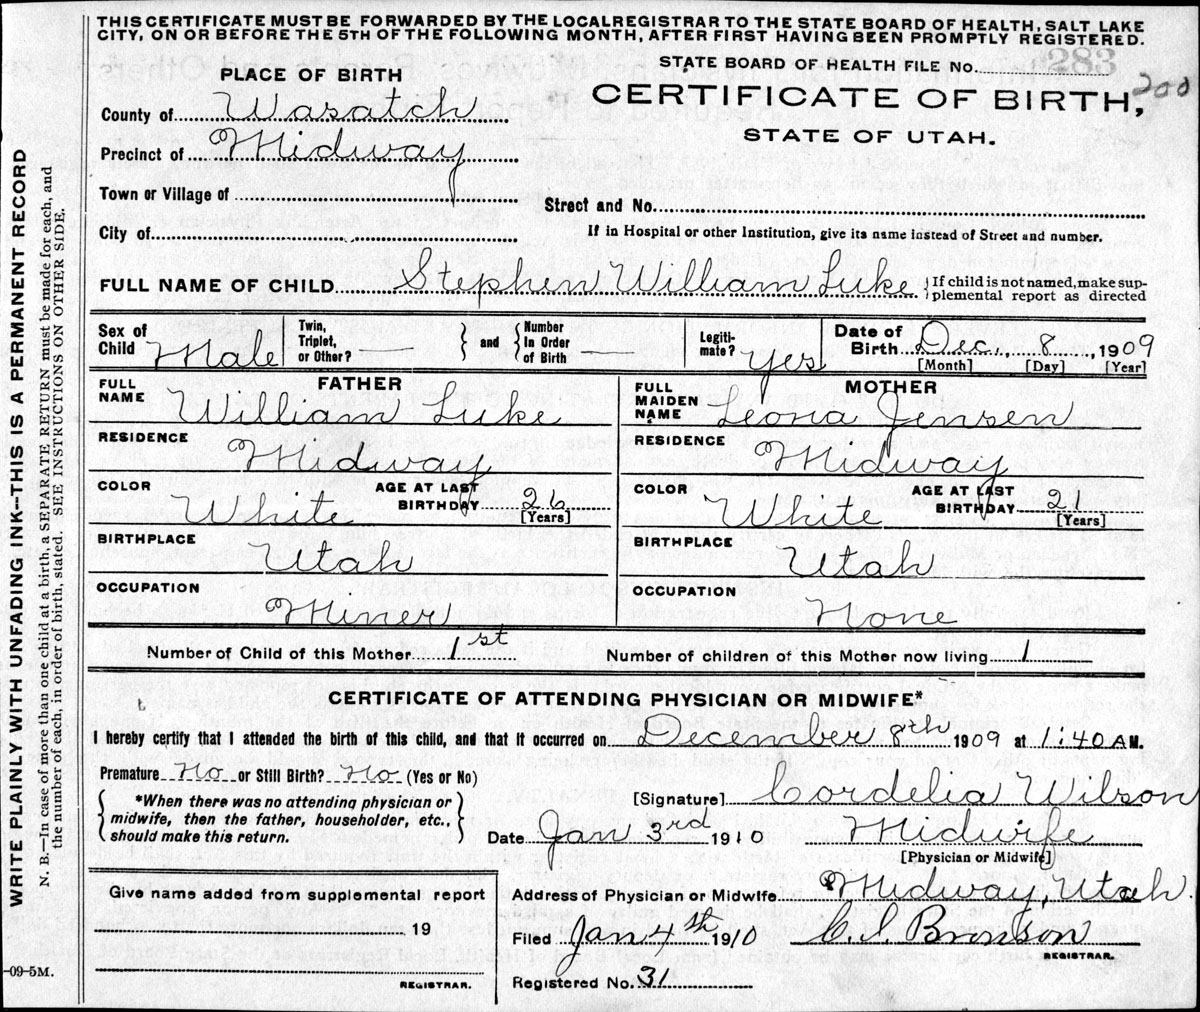 THIS CERTIFICATE MUST BE FORWARDED BY THE LOCAL REGISTRAR TO THE STATE BOARD OF HEALTH, SALT LAKE
CITY, ON OR BEFORE THE 5TH OF THE FOLLOWING MONTH, AFTER FIRST HAVING BEEN PROMPTLY REGISTERED.
STATE BOARD OF HEALTH FILE No. 283
200
PLACE OF BIRTH
CERTIFICATE OF BIRTH,
STATE OF UTAH.
County of Wasatch
Precinct of Midway
Town or Village of
Street and No.
City of
If in Hospital or other Institution, give its name instead of Street and number.
FULL NAME OF CHILD Stephen William Luke { If child is not named, make sup-
plemental report as directed
Sex of Child Male
Twin, Triplet, or Other? —
} and {
Number In Order of Birth —
Legiti-mate? Yes
Date of Birth Dec. 8, 1909
[Month] [Day] [Year]
FATHER
FULL NAME William Luke
RESIDENCE Midway
COLOR White AGE AT LAST BIRTHDAY 26
[Years]
BIRTHPLACE Utah
OCCUPATION Miner
MOTHER
FULL MAIDEN NAME Leona Jensen
RESIDENCE Midway
COLOR White AGE AT LAST BIRTHDAY 21
[Years]
BIRTHPLACE Utah
OCCUPATION None
Number of Child of this Mother 1st Number of children of this Mother now living 1
CERTIFICATE OF ATTENDING PHYSICIAN OR MIDWIFE*
I hereby certify that I attended the birth of this child, and that it occurred on December 8th 1909 at 1:40 A M.
Premature No or Still Birth? No (Yes or No)
{ *When there was no attending physician or
midwife, then the father, householder, etc.,
should make this return. }
[Signature] Cordelia Wilson
Date Jan 3rd 1910 Midwife
[Physician or Midwife]
Give name added from supplemental report
19
REGISTRAR.
Address of Physician or Midwife Midway, Utah.
Filed Jan 4th 1910 C. I. Bronson
REGISTRAR.
Registered No. 31
-09-5M.
WRITE PLAINLY WITH UNFADING INK—THIS IS A PERMANENT RECORD
N. B.—In case of more than one child at a birth, a SEPARATE RETURN must be made for each, and
the number of each, in order of birth, stated. SEE INSTRUCTIONS ON OTHER SIDE.